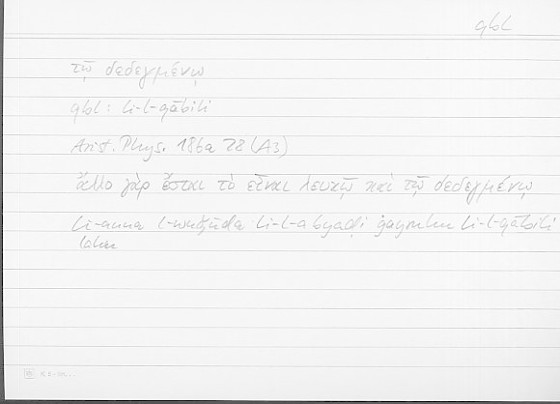 qbl
τῷ δεδεγμένῳ
qbl: li-l-qābili
Arist. Phys. 186a 28 (A3)
ἄλλο γὰρ ἔσται τὸ εἶναι λευκῷ καὶ τῷ δεδεγμένῳ
li-anna l-wuǧūda li-l-abyaḍi ġayruhu li-l-qābili
lahu